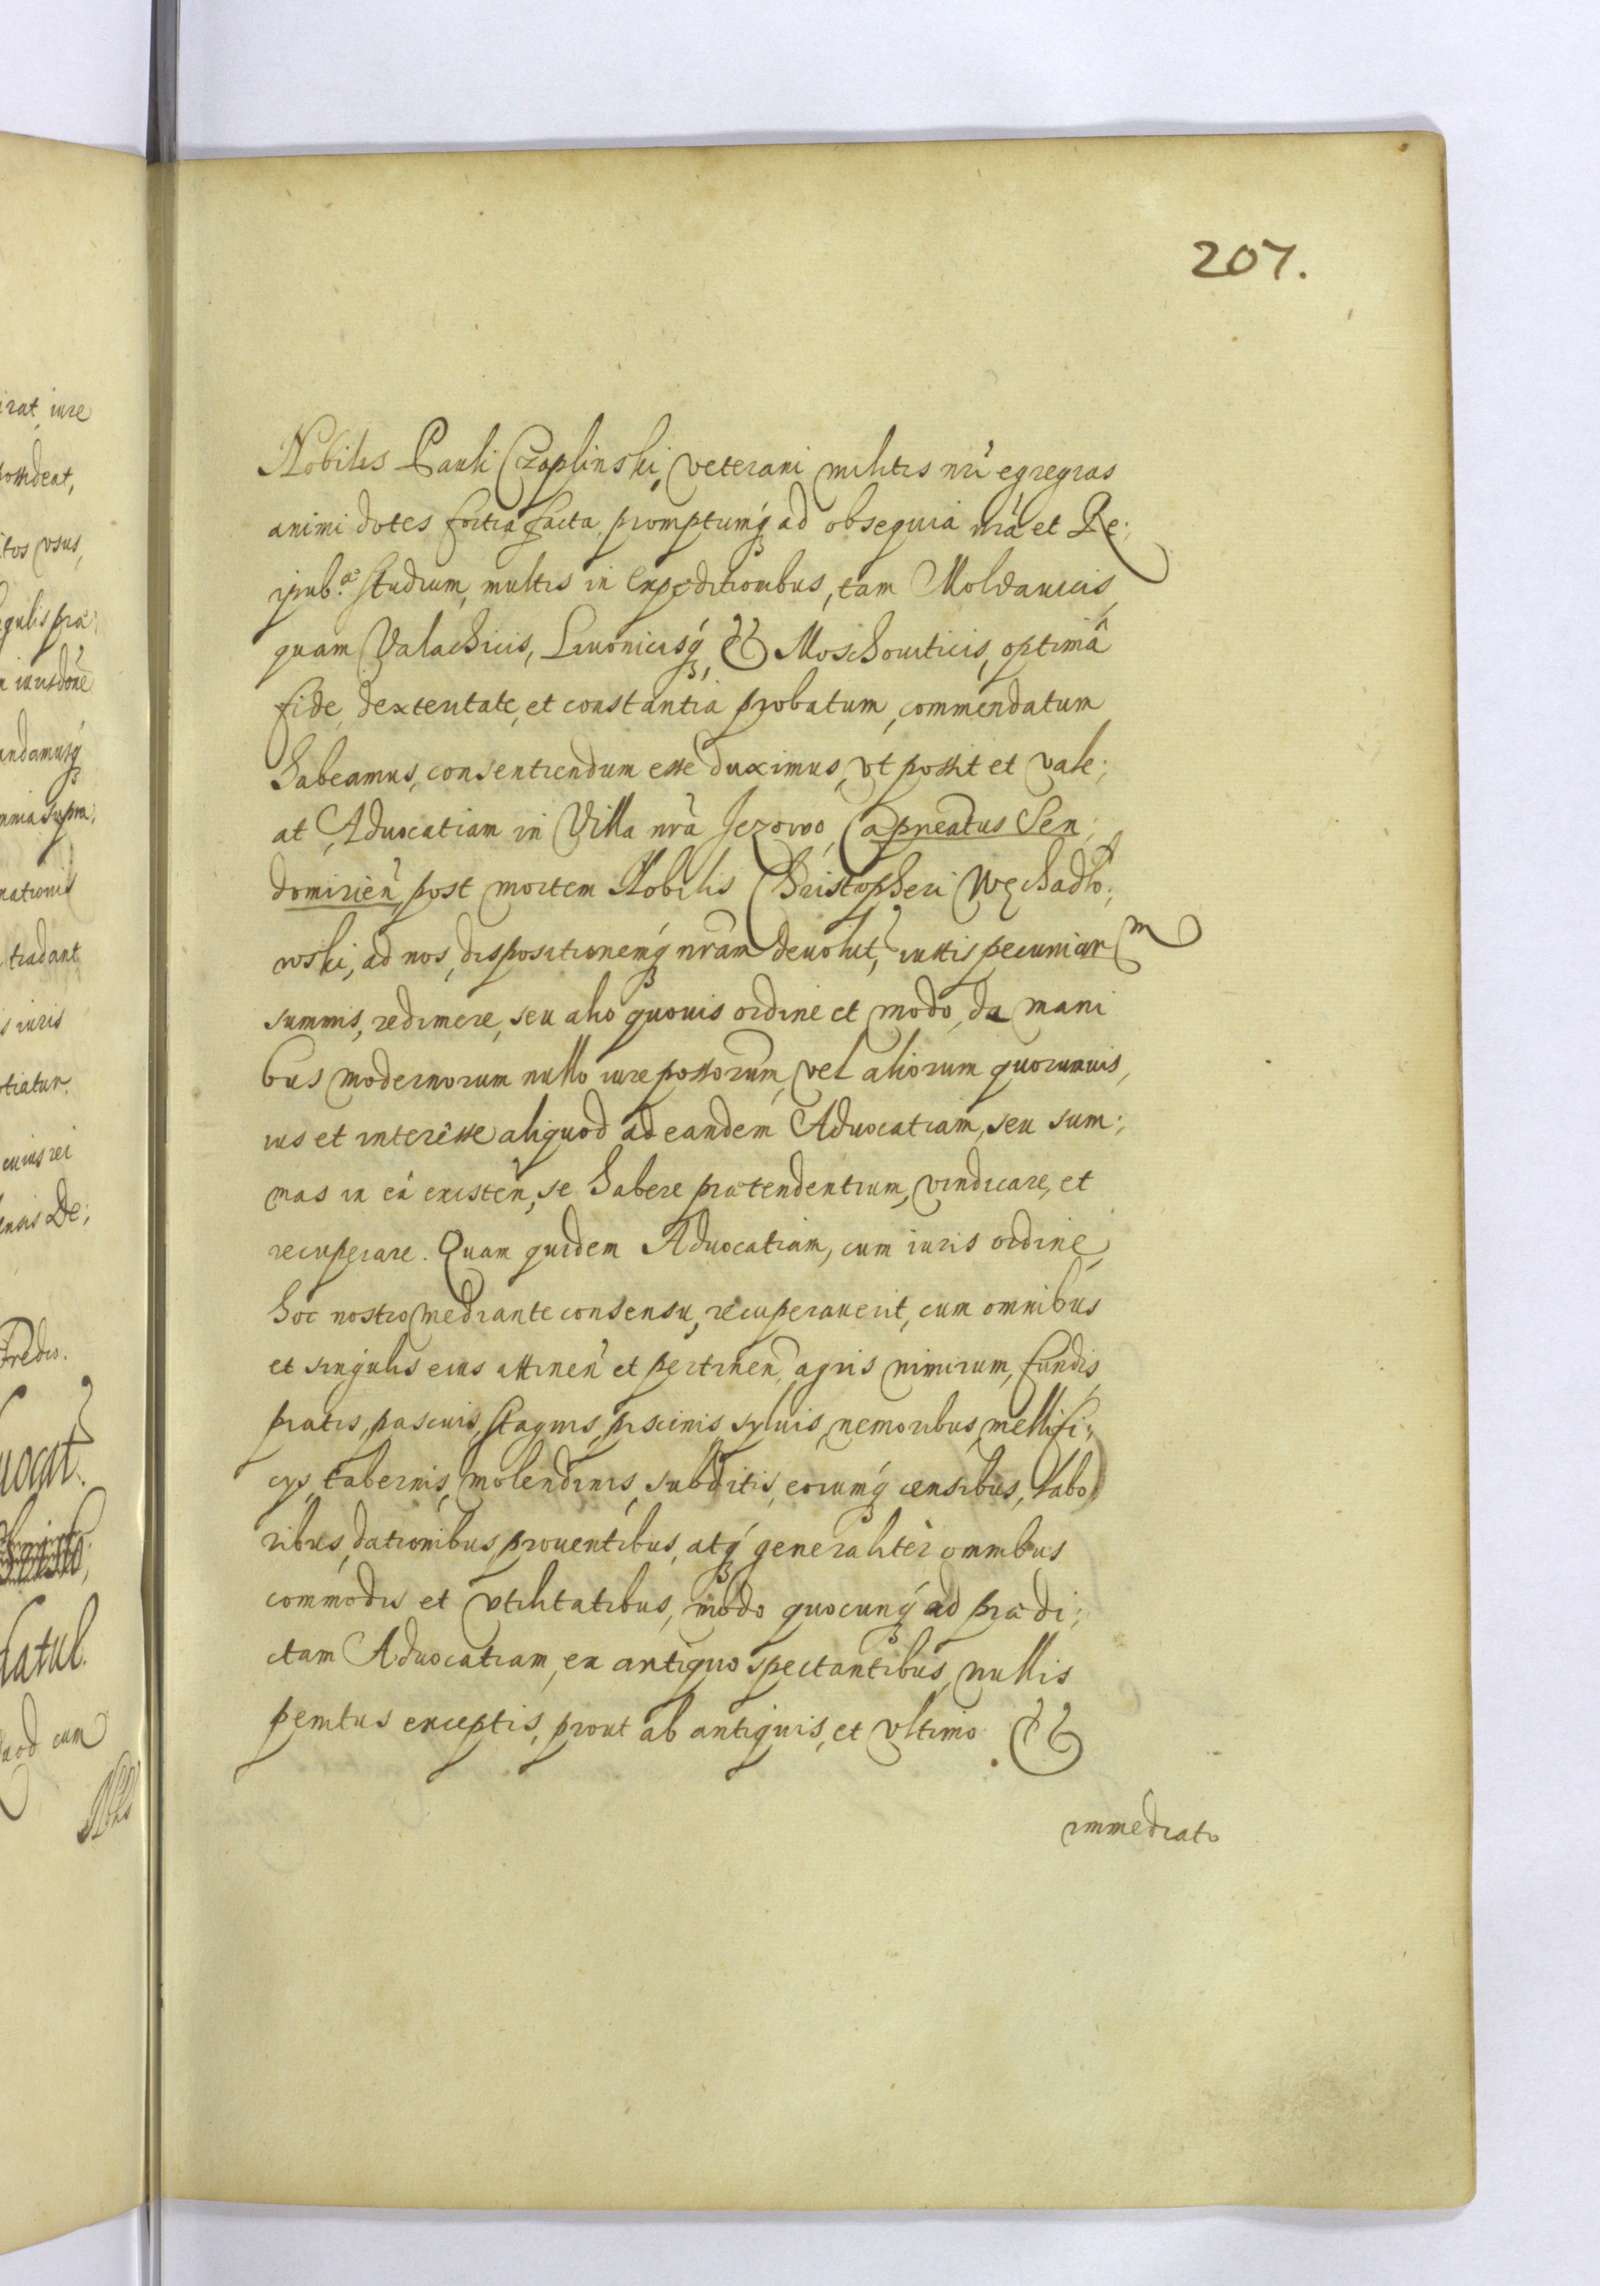 207.
Nobilis Pauli Czaplinski, veterani militis nrī egregias
animi dotes fortia facta, promptumq́ ad obsequia nrā et Re:
ipub.ae studium, multis in Expeditionibus, tam Moldauicis,
quam Valachicis, Liuonicisq́, & Moschouiticis, optimâ
fide, dexteritate, et constantia probatum, commendatum
habeamus, consentiendum esse duximus, vt possit et vale:
at, Aduocatiam in Villa nrā Jezowo, Capneatus Sen:
domirien̄, post mortem Nobilis Christopheri Węchadło:
wski, ad nos, dispositionemq́ nram̄ deuolut, iustis pecuniar m
summis, redimere, seu alio quouis ordine et modo, de mani
bus modernorum nullo iure possorum̄, vel aliorum quorumuis,
ius et interêsse aliquod ad eandem Aduocatiam, seu sum:
mas in eâ existen̄, se habere prætendentium, vindicare, et
recuperare. Quam quidem Aduocatiam, cum iuris ordine,
hoc nostro mediante consensu, recuperauerit, cum omnibus
et singulis eius attinen̄ et pertinen̄, agris nimirum, fundis,
pratis, pascuis, stagnis, piscinis, syluis, nemoribus, mellifi:
cys, tabernis, molendinis, subditis, eorumq́ censibus, labo
ribus, dationibus, prouentibus, atq́ generalitèr omnibus
commodis et vtilitatibus, modo quocunq́ ad prædi:
ctam Aduocatiam, ex antiquo spectantibus, nullis
penitus exceptis, prout ab antiquis, et vltimo &
immediato
irat iure
ossideat,
itos vsus,
gulis præ
n iurisdone
andamusq́
mnia supra,
nationis
tradant
s iuris
otiatur.
cuius rei
ensis De:
Fredro.
uocat.
datul.
uod cum
Nobi